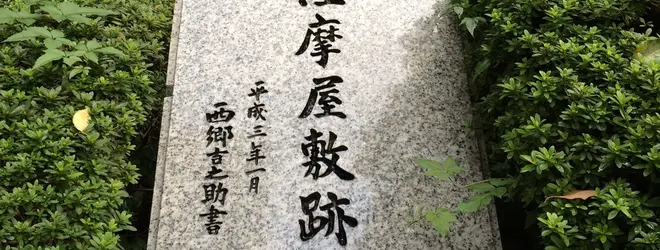 摩屋敷跡
平成三年一月
西郷吉之助書